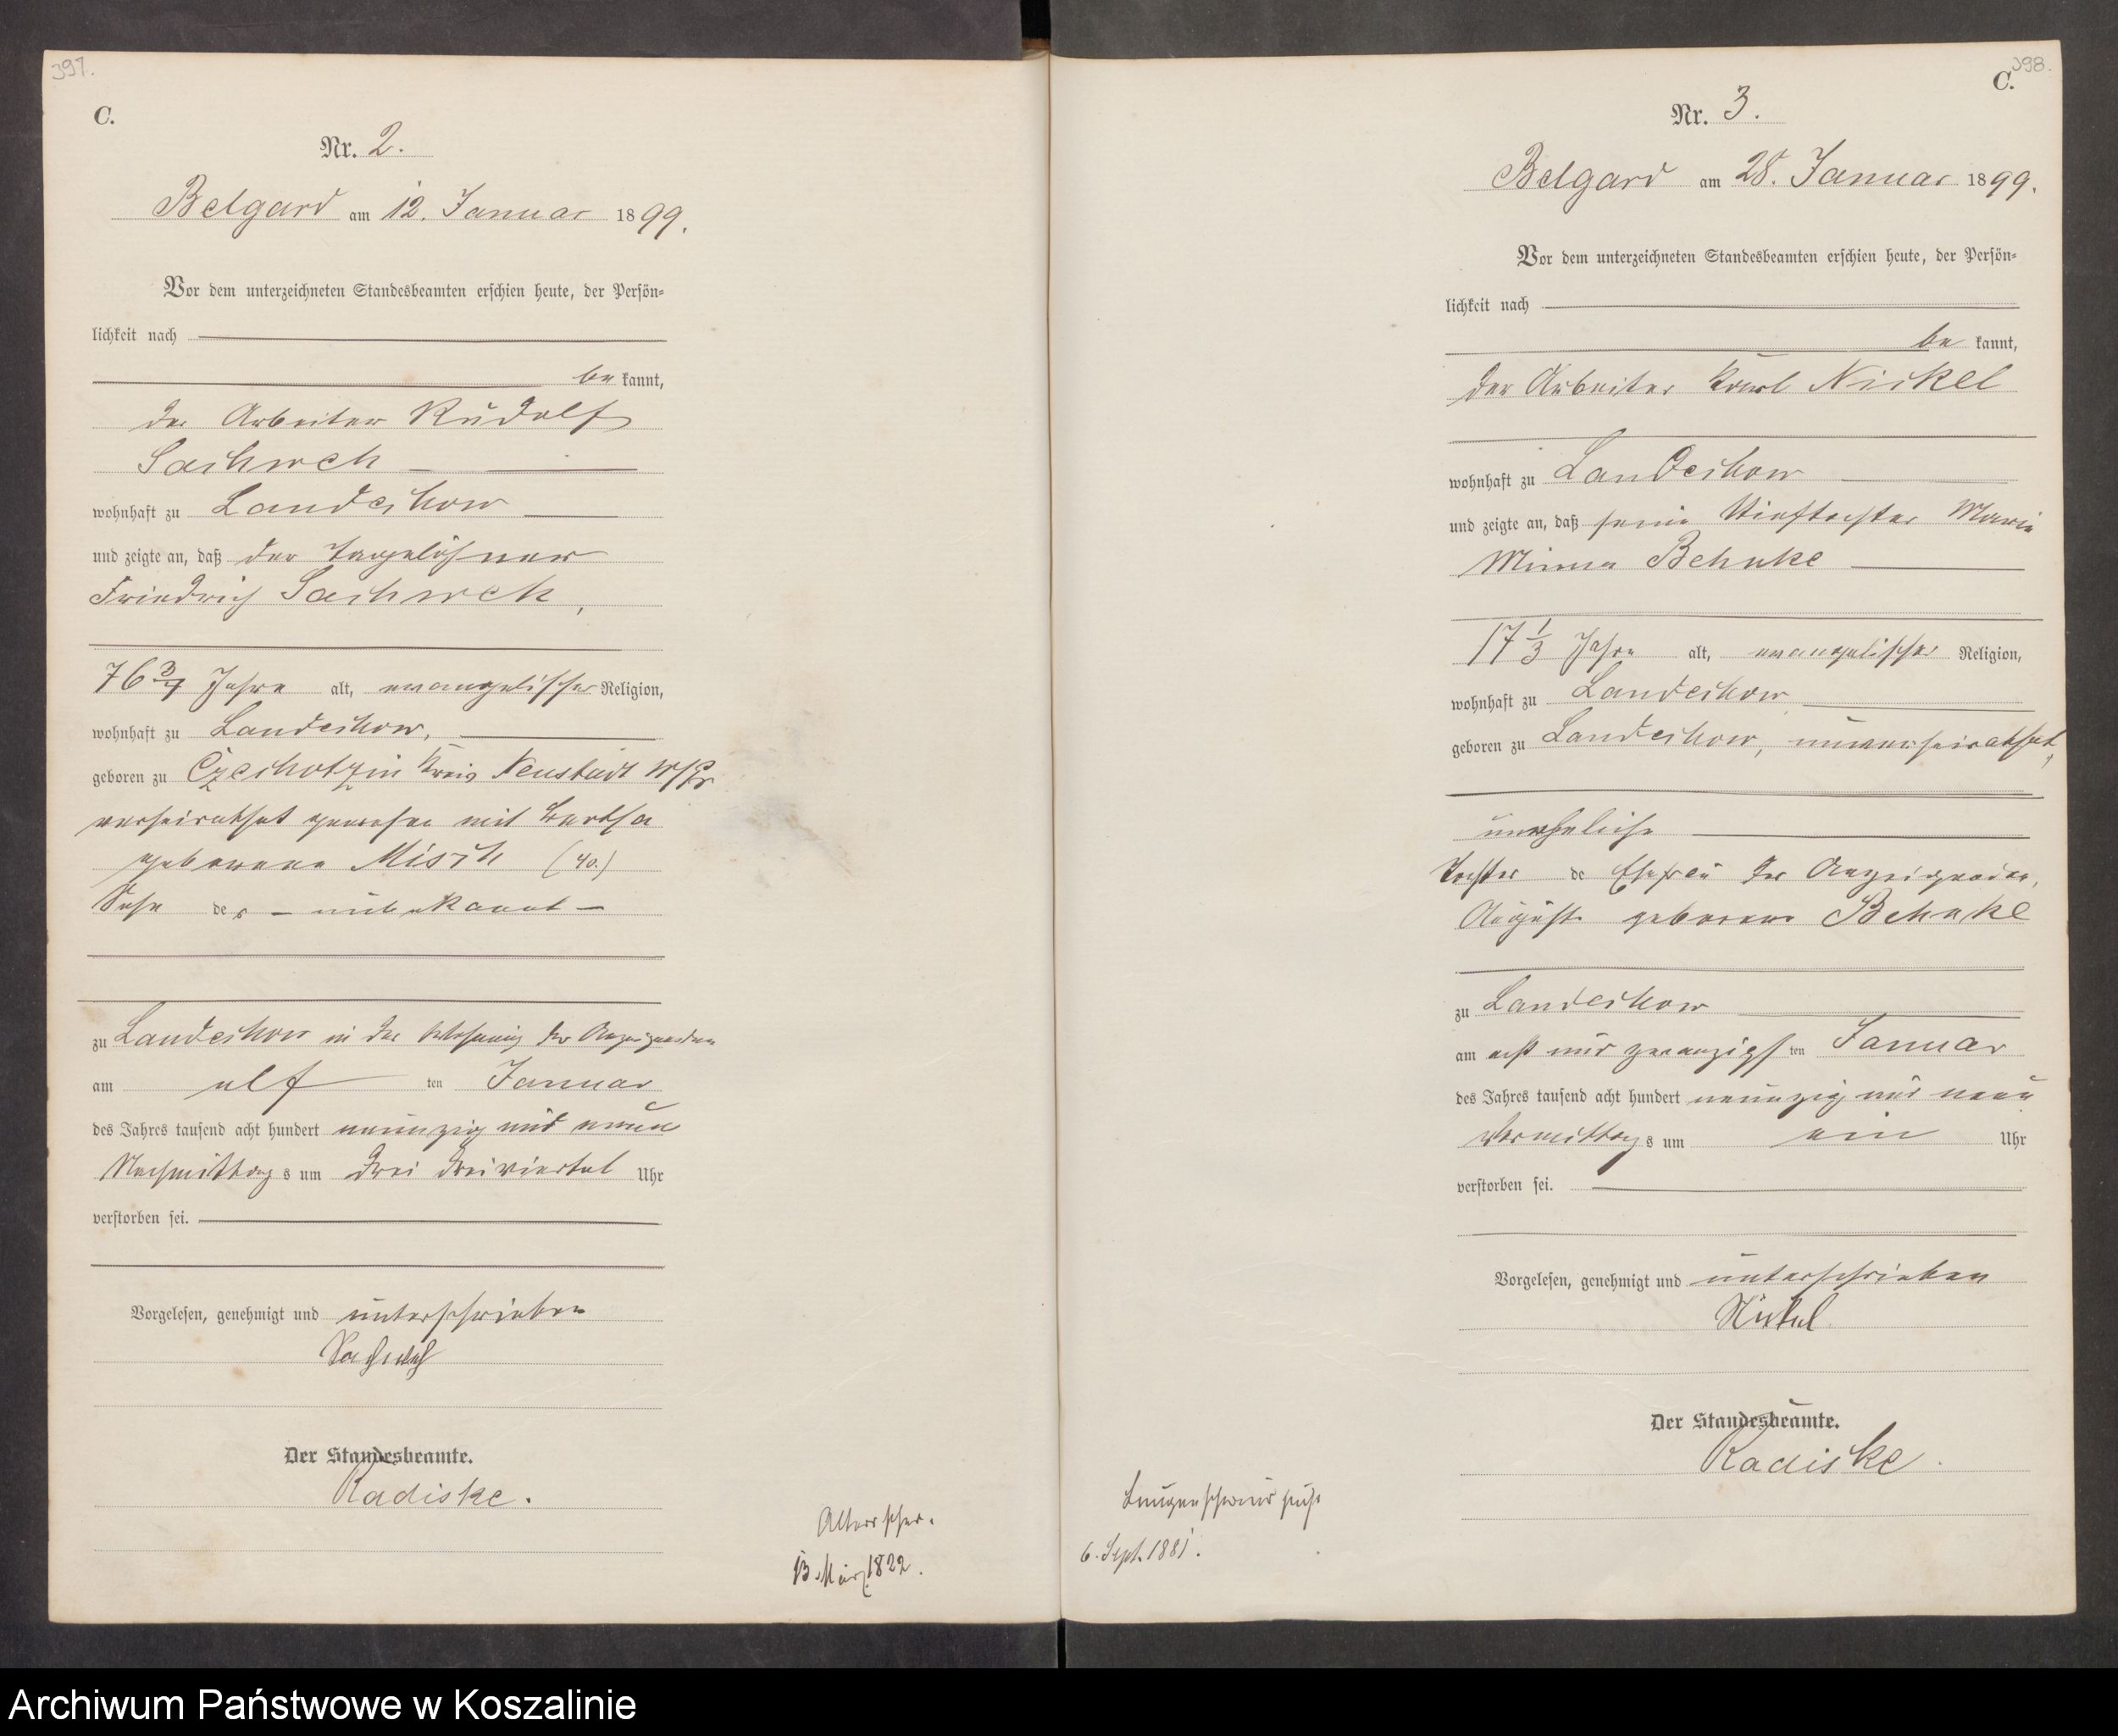 397.
C.
Nr. 2.
Belgard am 12. Januar 1899.
Vor dem unterzeichneten Standesbeamten erschien heute, der Persön-
lichkeit nach
be kannt,
der Arbeiter Rudolf
Sachweh
wohnhaft zu Landechow
und zeigte an, daß der Tagelöhner
Friedrich Sachweh,
76 3/4 Jahre alt, evangelischer Religion,
wohnhaft zu Landechow,
geboren zu Czechotzin Kreis Neustadt W/Pr
verheirathet gewesen mit Bertha
geborene Misch (40.)
Sohn des - unbekannt -
zu Landechow in der Wohnung des Anzeigenden
am elf ten Januar
des Jahres tausend acht hundert neunzig und neun
Nachmittags um drei dreiviertel Uhr
verstorben sei.
Vorgelesen, genehmigt und unterschrieben
Sachweh
Der Standesbeamte.
Radiske.
Altersschw.
13. März 1822.
398.
C.
Nr. 3.
Belgard am 28. Januar 1899.
Vor dem unterzeichneten Standesbeamten erschien heute, der Persön-
lichkeit nach
be kannt,
der Arbeiter Karl Nickel
wohnhaft zu Landechow
und zeigte an, daß seine Stieftochter Marie
Minna Behnke
17 1/3 Jahre alt, evangelischer Religion,
wohnhaft zu Landechow
geboren zu Landechow, unverheirathet,
uneheliche
Tochter de Ehefrau des Anzeigenden,
Auguste geborene Behnke
zu Landechow
am acht und zwanzigs ten Januar
des Jahres tausend acht hundert neunzig und neun
Vormittags um ein Uhr
verstorben sei.
Vorgelesen, genehmigt und unterschrieben
Nickel
Der Standesbeamte.
Radiske.
Lungenschwindsucht
6. Sept. 1881.
Archiwum Państwowe w Koszalinie